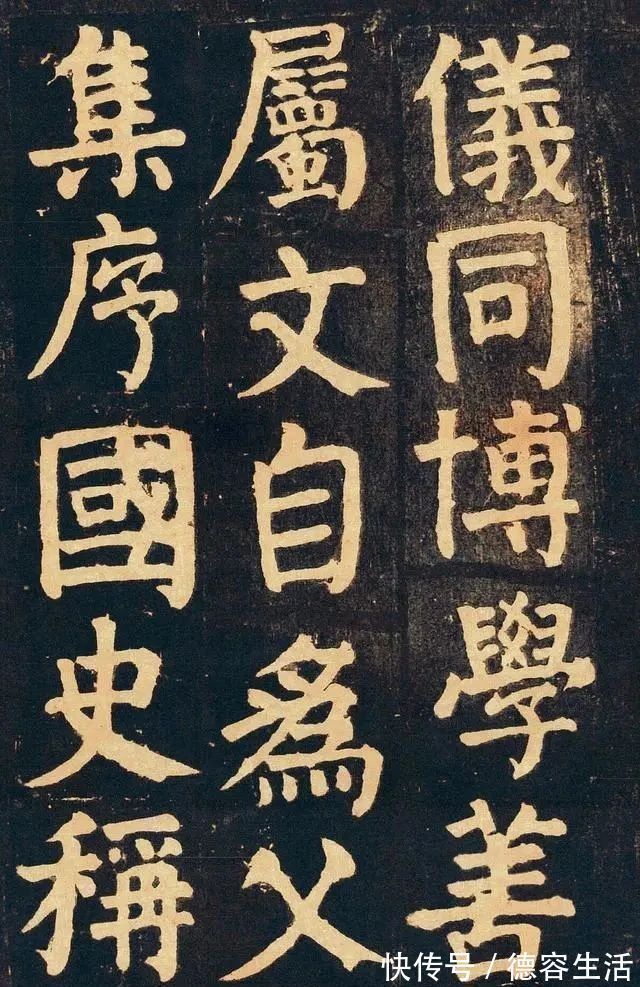 儀同博學善
屬文自爲父
集序國史稱
快传号／德容生活